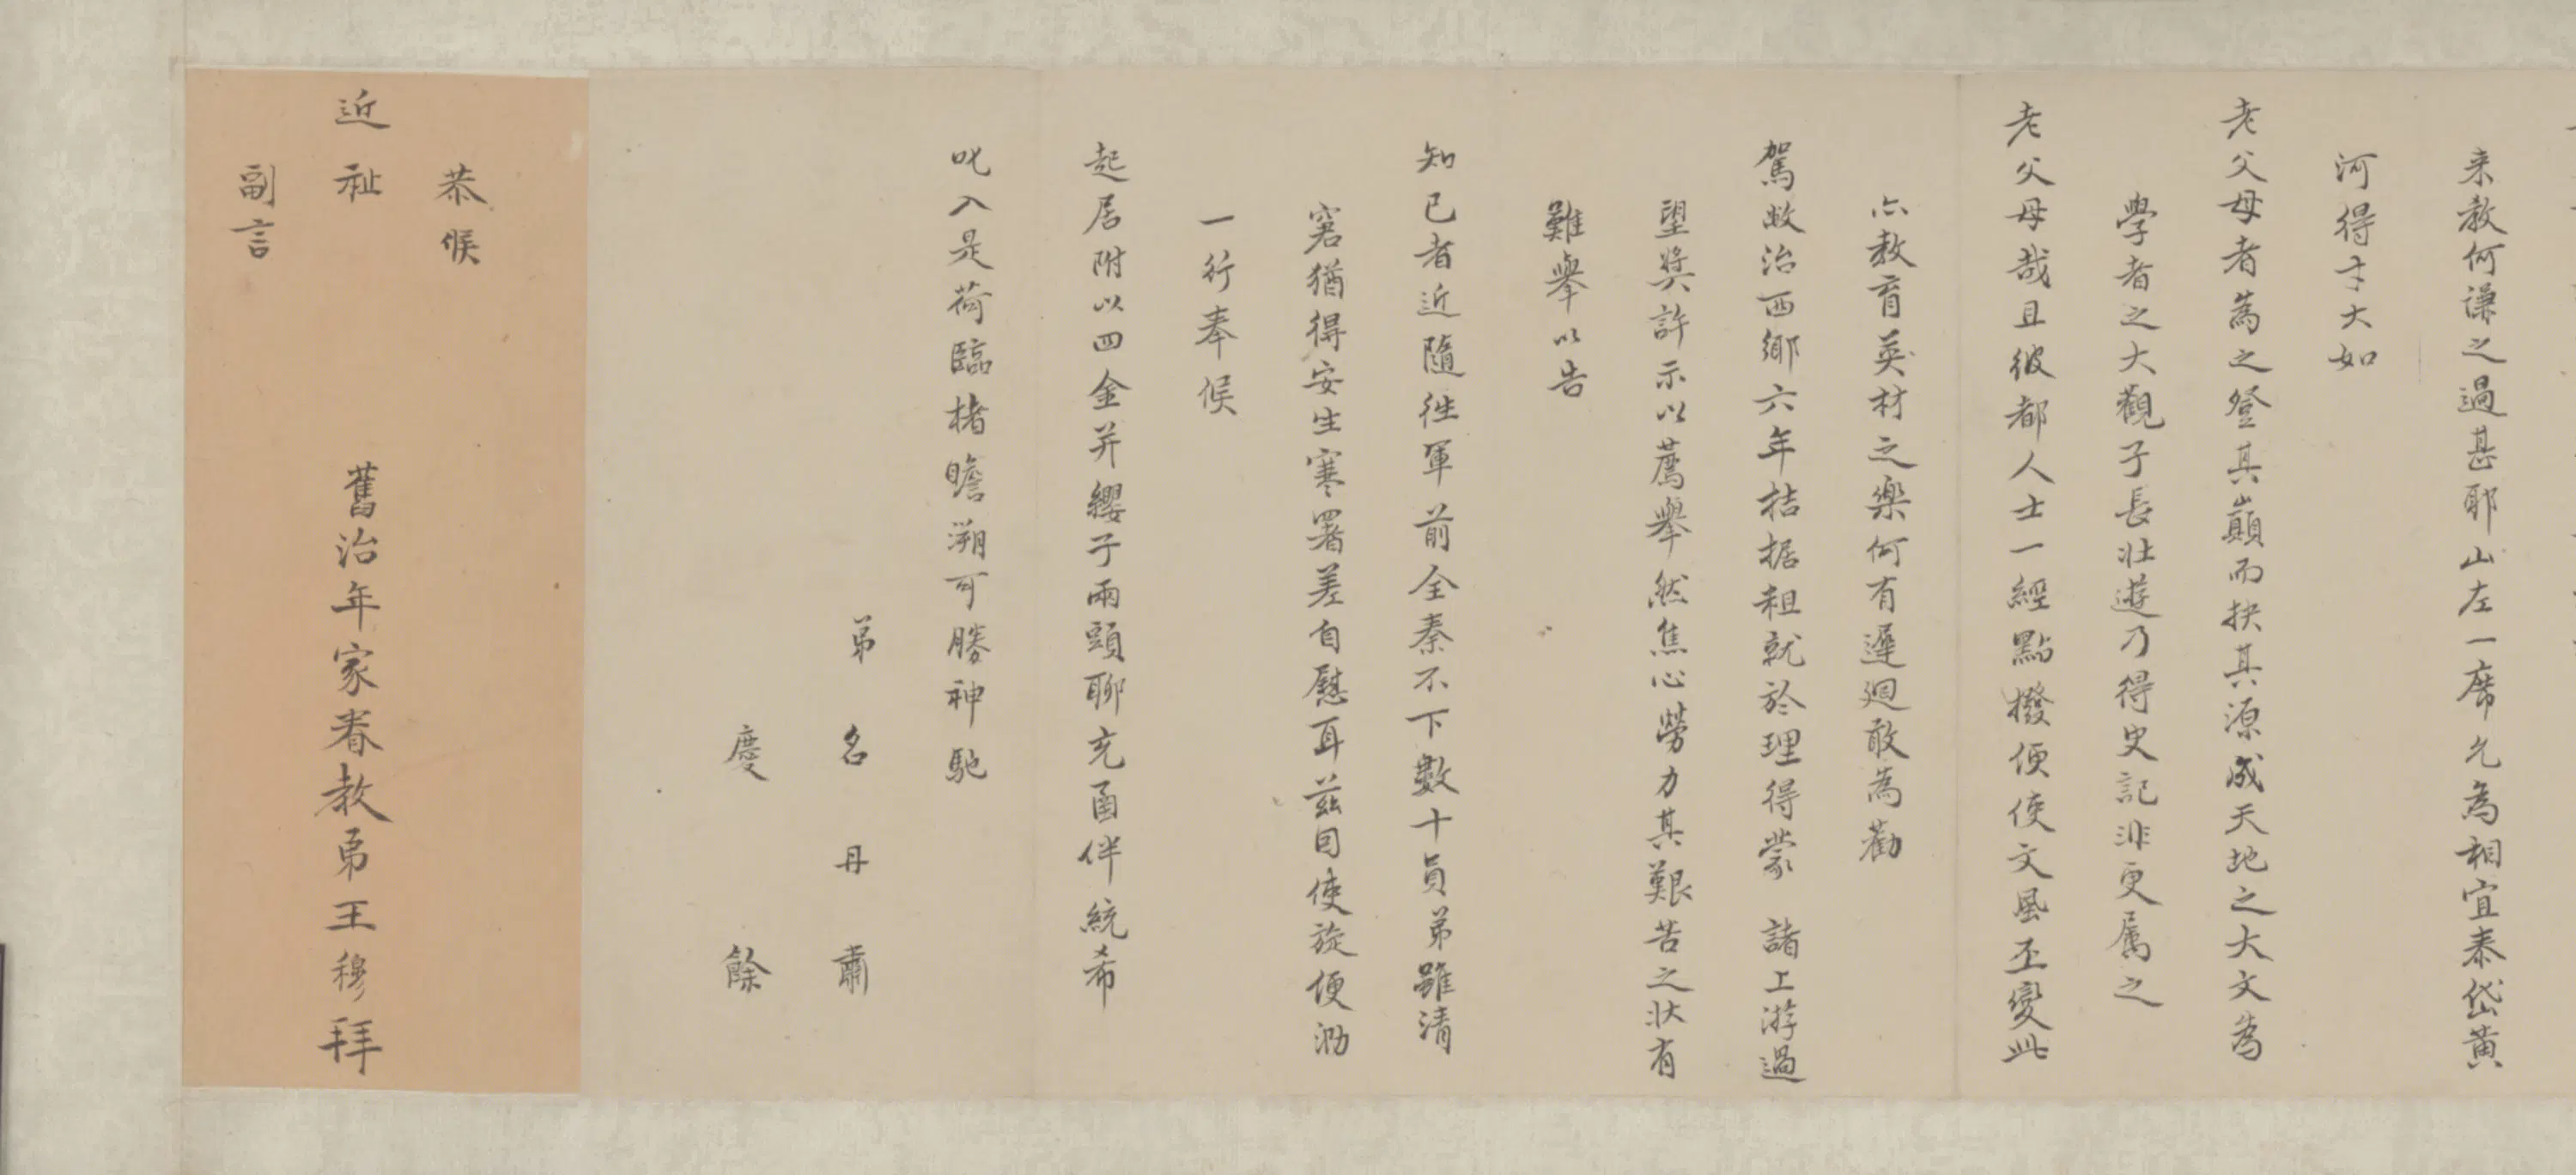 来教何谦之過甚耶山左一席允為相宜泰岱黃
河得之大如
老父母者為之登其巔而抉其源成天地之大文為
學者之大觀子長壯遊乃得史記非更屬之
老父母哉且彼都人士一經點撥便使文風丕變此
亦教育英材之樂何有遲迴敢為勸
駕敝治西鄉六年拮据粗就於理得蒙 諸上游過
望獎許示以薦舉然焦心勞力其艱苦之狀有
難舉以告
知己者近隨徃軍前全秦不下數十員弟雖清
窘猶得安生寒署差自慰耳茲因使旋便泐
一行奉候
起居附以四金并纓子兩頭聊充函伴統希
叱入是荷臨楮瞻溯可勝神馳
弟名丹肅
慶餘
恭候
近祉
舊治年家眷教弟王穆拜
副言